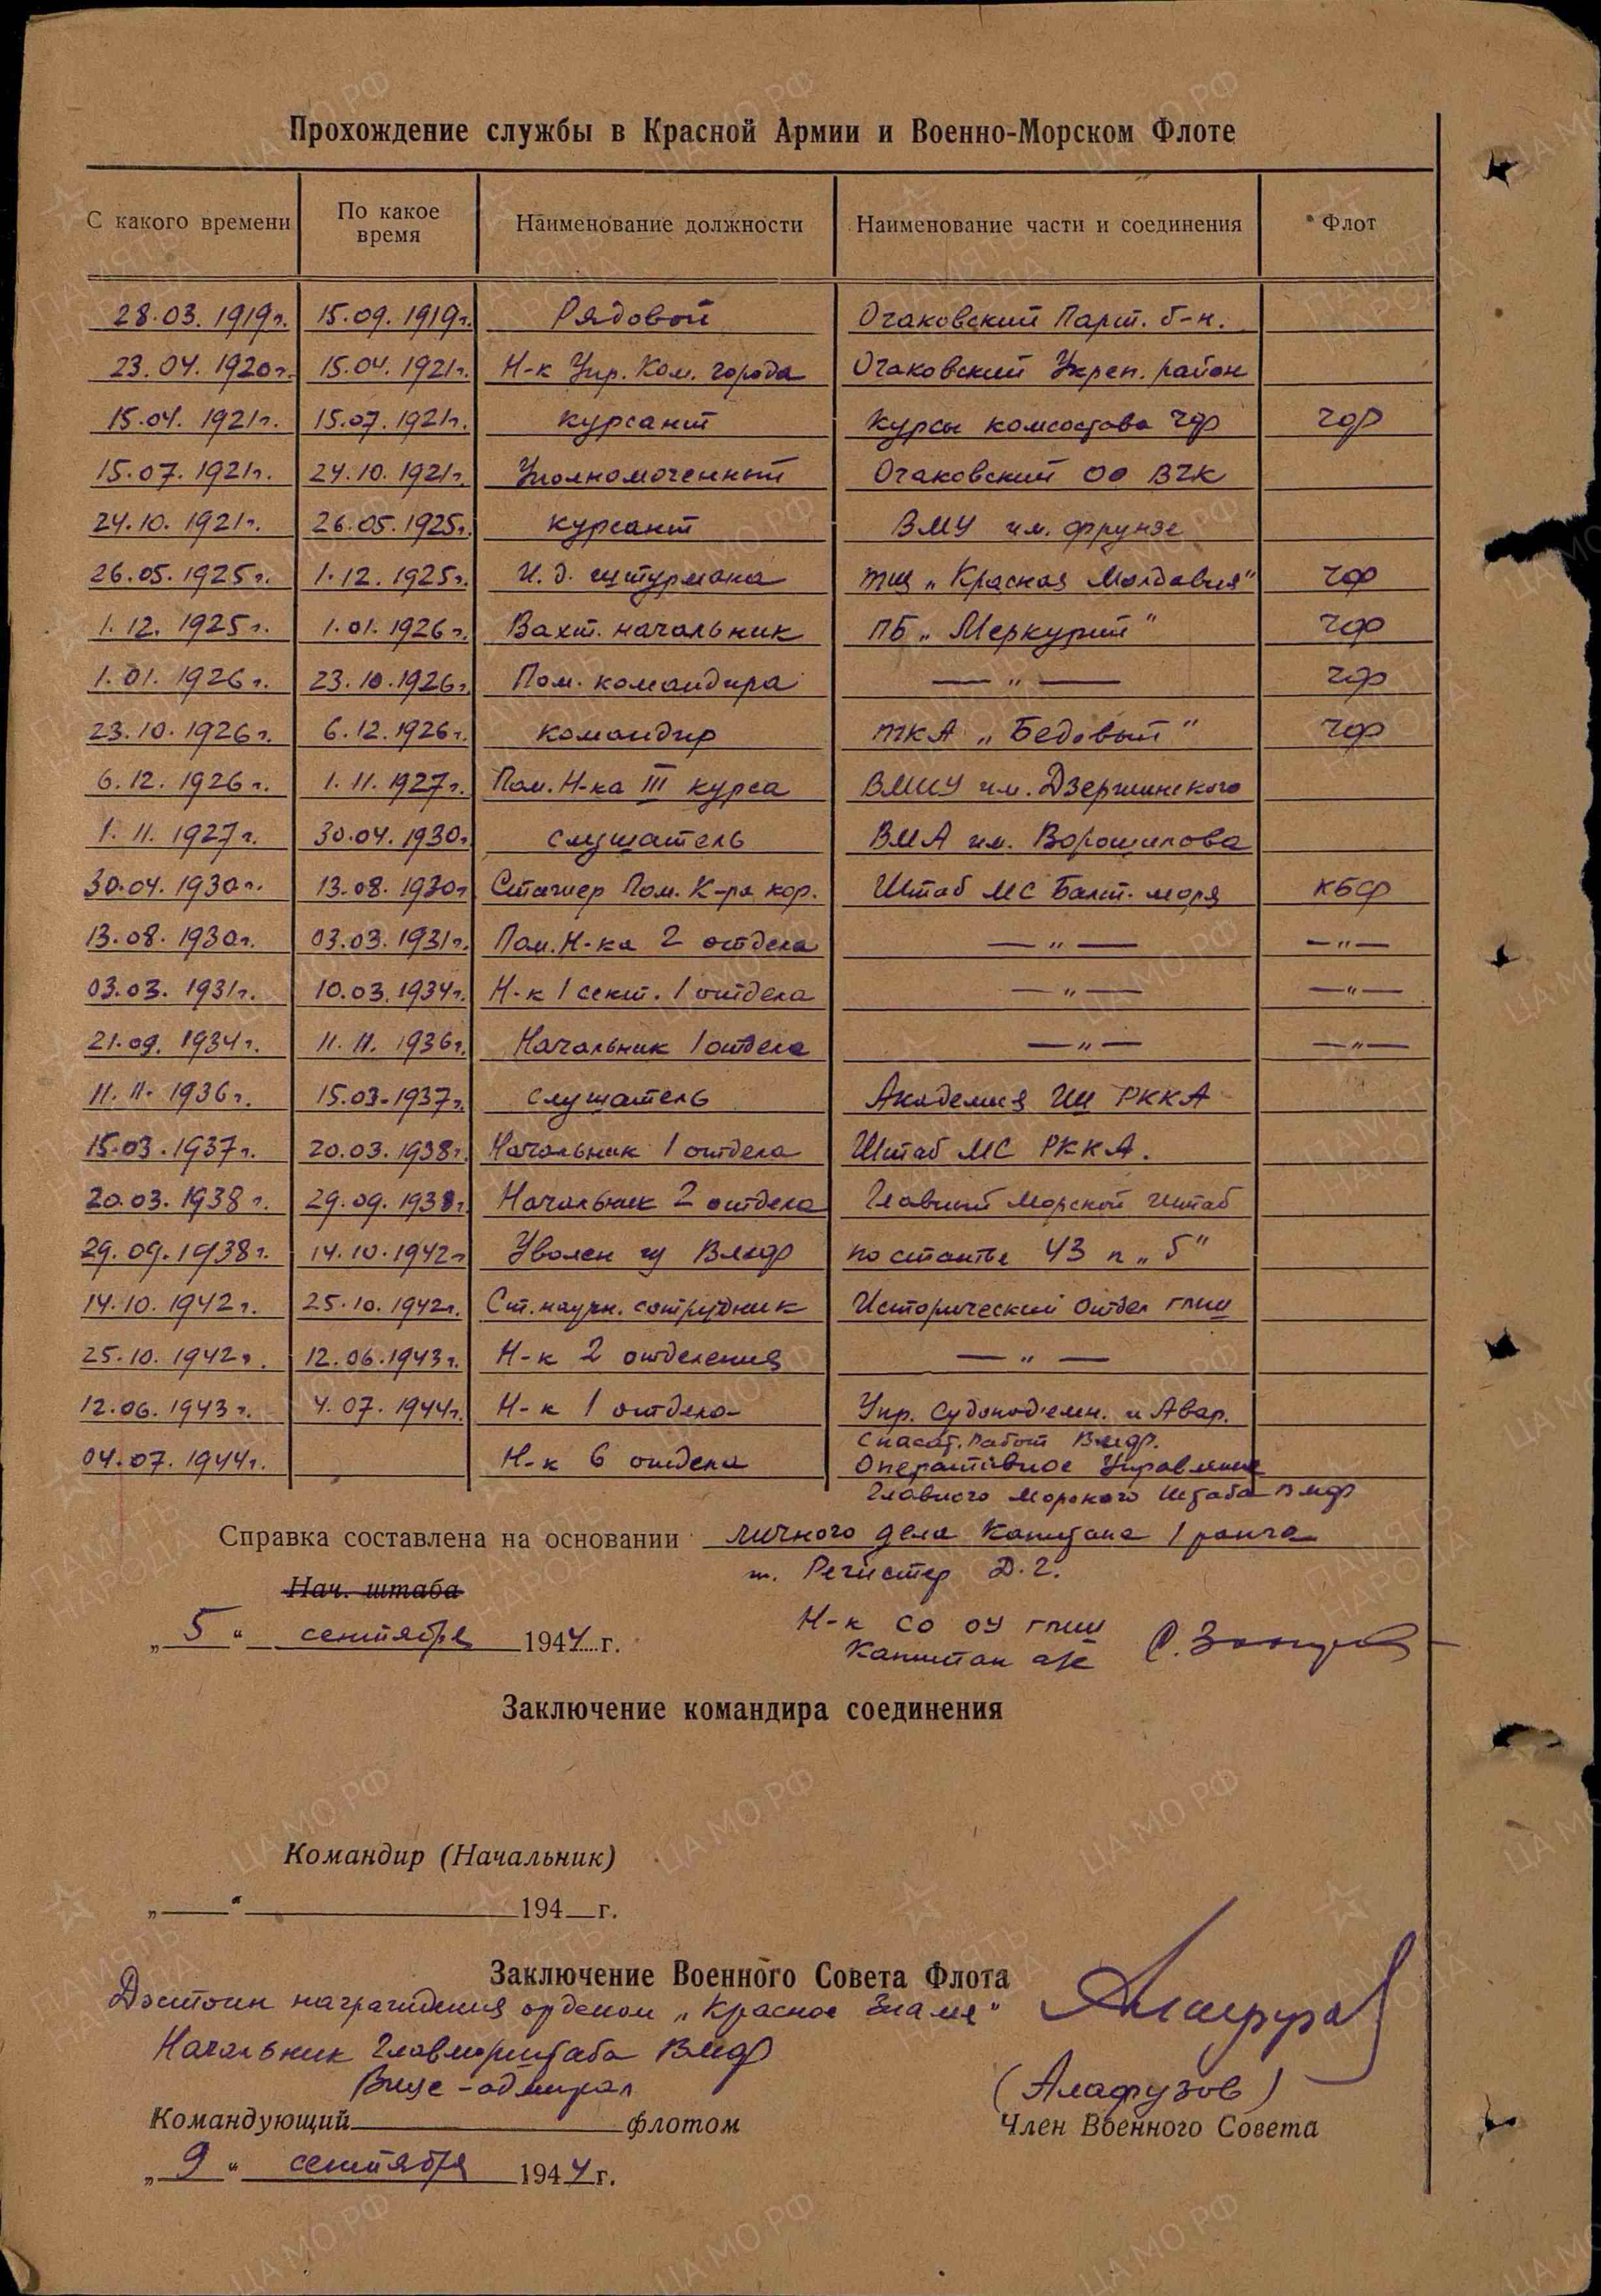 Прохождение службы в Красной Армии и Военно-Морском Флоте
С какого времени По какое время Наименование должности Наименование части и соединения Флот
28.03.1919г. 15.09.1919г. Рядовой Очаковский Парт. б-н.
23.04.1920г. 15.04.1921г. Н-к Упр. Ком. города Очаковский Укреп. район
15.04.1921г. 15.07.1921г. курсант Курсы комсостава ЧФ ЧФ
15.07.1921г. 24.10.1921г. Уполномоченный Очаковский ОО ВЧК
24.10.1921г. 26.05.1925г. курсант ВМУ им. Фрунзе
26.05.1925г. 1.12.1925г. И.д. штурмана тщ „Красная Молдавия" ЧФ
1.12.1925г. 1.01.1926г. Вахт. начальник ПБ „Меркурий" ЧФ
1.01.1926г. 23.10.1926г. Пом. командира — " — ЧФ
23.10.1926г. 6.12.1926г. командир ТКА „Бедовый" ЧФ
6.12.1926г. 1.11.1927г. Пом. Н-ка III курса ВМИУ им. Дзержинского
1.11.1927г. 30.04.1930г. слушатель ВМА им. Ворошилова
30.04.1930г. 13.08.1930г. Стажер Пом. К-ра кор. Штаб МС Балт. моря КБФ
13.08.1930г. 03.03.1931г. Пом. Н-ка 2 отдела — " — — " —
03.03.1931г. 10.03.1934г. Н-к 1 сект. 1 отдела — " — — " —
21.09.1934г. 11.11.1936г. Начальник 1 отдела — " — — " —
11.11.1936г. 15.03.1937г. слушатель Академия ГШ РККА
15.03.1937г. 20.03.1938г. Начальник 1 отдела Штаб МС РККА.
20.03.1938г. 29.09.1938г. Начальник 2 отдела Главный Морской Штаб
29.09.1938г. 14.10.1942г. Уволен из ВМФ по статье 43 п „б"
14.10.1942г. 25.10.1942г. Ст. научн. сотрудник Исторический отдел ГМШ
25.10.1942г. 12.06.1943г. Н-к 2 отделения — " —
12.06.1943г. 4.07.1944г. Н-к 1 отдела Упр. Судоподъемн. и Авар.
Спасат. Работ ВМФ.
04.07.1944г. Н-к 6 отдела Оперативное Управление
Главного Морского Штаба ВМФ
Справка составлена на основании личного дела Капитана 1 ранга
т. Регистер Д.Г.
Нач. штаба
„5" сентября 1944 г.
Н-к СО ОУ ГМШ
Капитан а/с
Заключение командира соединения
Командир (Начальник)
„ " 194 г.
Заключение Военного Совета Флота
Достоин награждения орденом „Красное Знамя"
Начальник Главморштаба ВМФ
Вице-адмирал
(Алафузов)
Командующий флотом Член Военного Совета
„9" сентября 1944 г.
ЦА МО РФ
ПАМЯТЬ НАРОДА